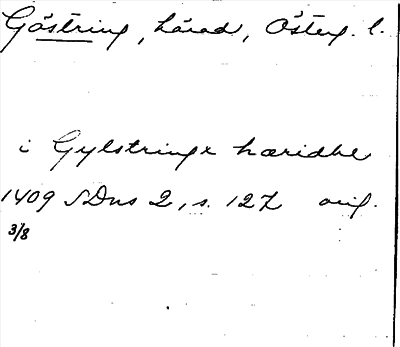 Göstring, härad, Österg. l.
i Gylstringe hæridhe
1409 SDns 2, s. 127 orig.
3/8